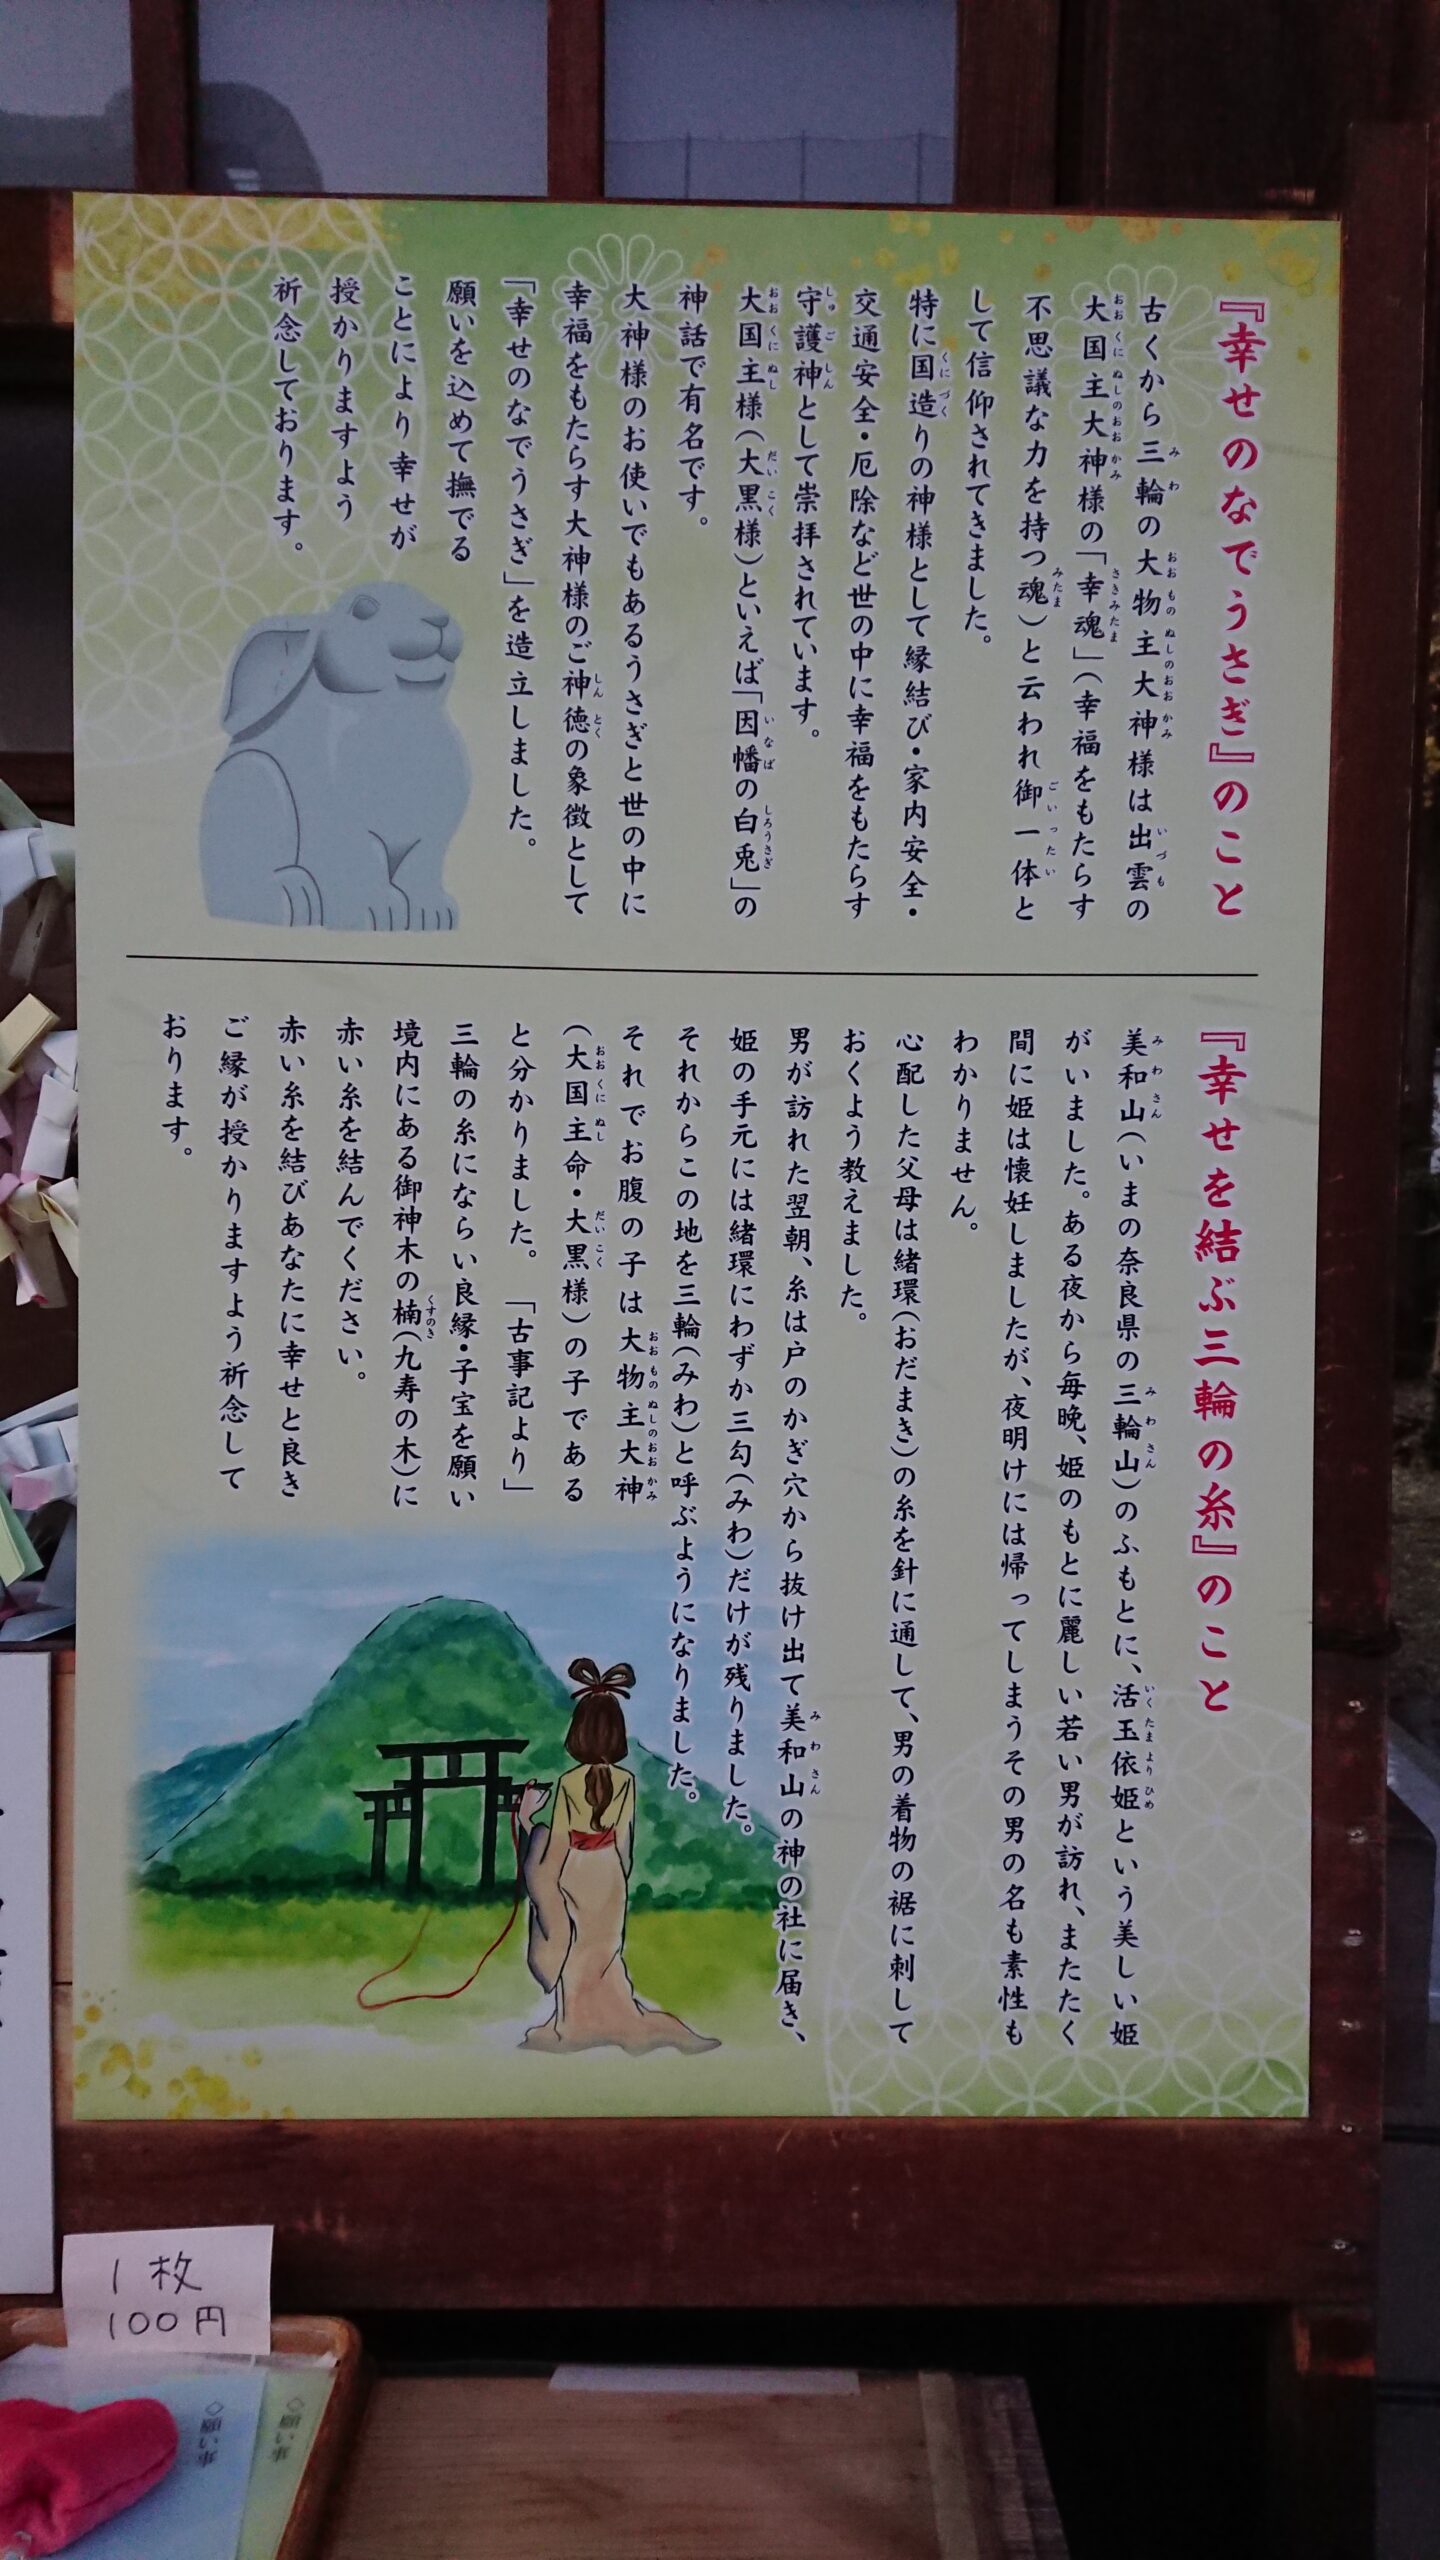 『幸せのなでうさぎ』のこと
古くから三輪の大物主大神様は出雲の
大国主大神様の「幸魂」（幸福をもたらす
不思議な力を持つ魂）と云われ御一体と
して信仰されてきました。
特に国造りの神様として縁結び・家内安全・
交通安全・厄除など世の中に幸福をもたらす
守護神として崇拝されています。
大国主様（大黒様）といえば「因幡の白兎」の
神話で有名です。
大神様のお使いでもあるうさぎと世の中に
幸福をもたらす大神様のご神徳の象徴として
「幸せのなでうさぎ」を造立しました。
願いを込めて撫でる
ことにより幸せが
授かりますよう
祈念しております。
『幸せを結ぶ三輪の糸』のこと
美和山（いまの奈良県の三輪山）のふもとに、活玉依姫という美しい姫
がいました。ある夜から毎晩、姫のもとに麗しい若い男が訪れ、またたく
間に姫は懐妊しましたが、夜明けには帰ってしまうその男の名も素性も
わかりません。
心配した父母は緒環（おだまき）の糸を針に通して、男の着物の裾に刺して
おくよう教えました。
男が訪れた翌朝、糸は戸のかぎ穴から抜け出て美和山の神の社に届き、
姫の手元には緒環にわずか三勾（みわ）だけが残りました。
それからこの地を三輪（みわ）と呼ぶようになりました。
それでお腹の子は大物主大神
（大国主命・大黒様）の子である
と分かりました。「古事記より」
三輪の糸にならい良縁・子宝を願い
境内にある御神木の楠（九寿の木）に
赤い糸を結んでください。
赤い糸を結びあなたに幸せと良き
ご縁が授かりますよう祈念して
おります。
1枚
100円